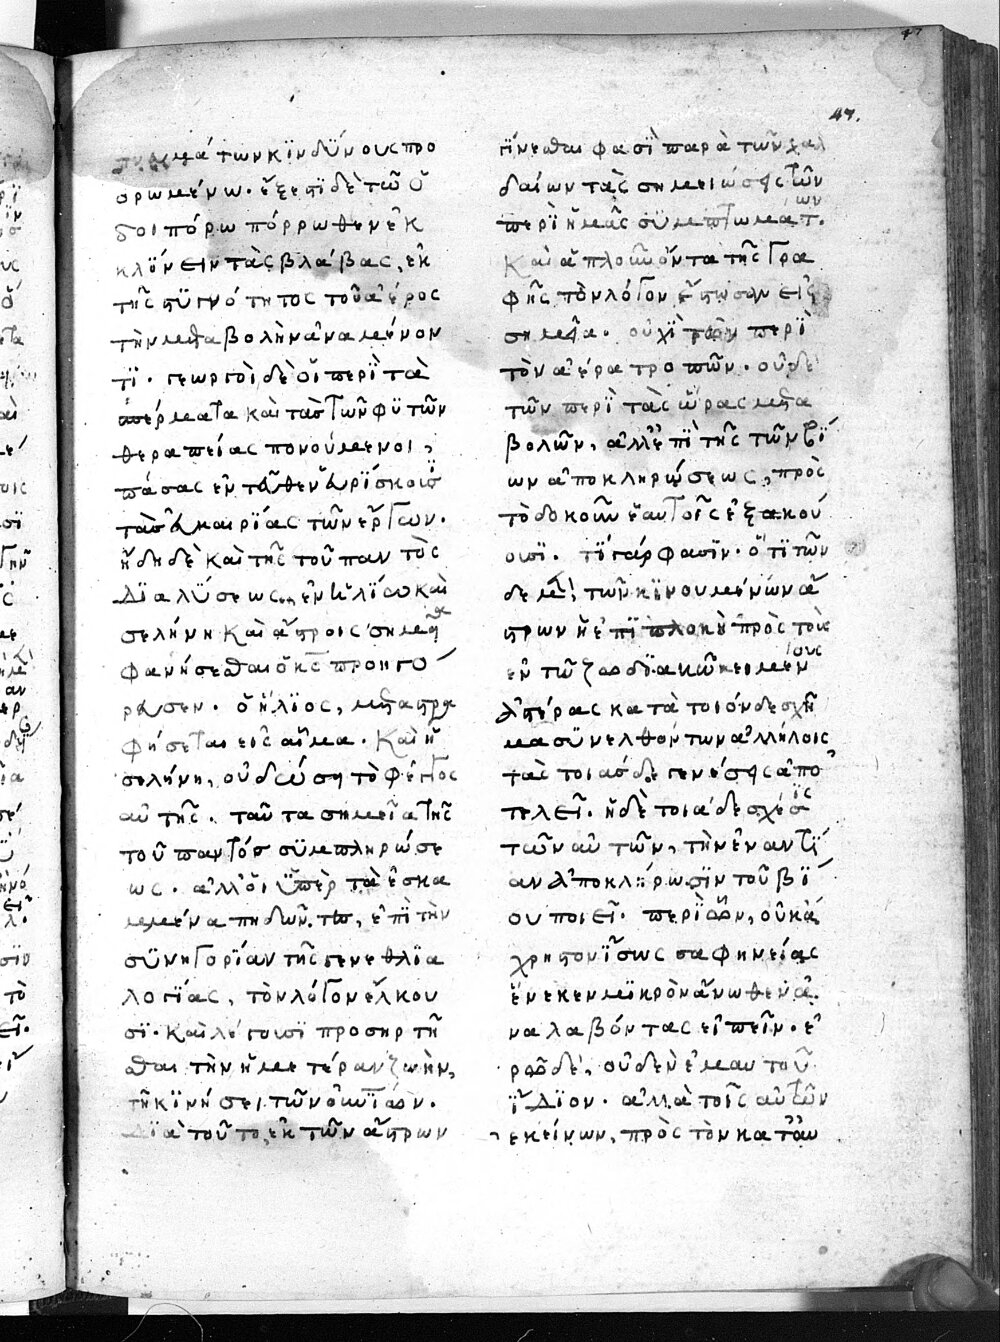 47.
πνευμάτων κϊνδύνους προ
ορωμένω. ἔξεστϊ δὲ τῶ ὁ
δοιπόρω πόρρωθεν ἐκ
κλΐνειν τὰς βλάβας, ἐκ
τῆς στϋγνότητος τοῦ ἀέρος
τὴν μεταβολὴν ἀναμένον
τϊ. γεωργοὶ δὲ οἱ περὶ τὰ
σπέρματα καὶ τὰς τῶν φϋτῶν
θεραπείας πονούμενοι,
πάσας ἐντεῦθεν εὑρίσκουσϊ
τὰς εὐκαιρίας τῶν ἔργων.
ἤδη δὲ καὶ τῆς τοῦ παντὸς
διαλΰσεως, ἐν ἡλίω καὶ
σελήνη καὶ ἄστροις σημεῖα
φανήσεσθαι ὁ κς προηγό
ρευσεν. ὁ ἥλϊος, μεταστρα
φήσεται εἰς αἷμα. Καὶ ἡ
σελήνη, οὐ δώσει τὸ φέγγος
αὐτῆς. ταῦτα σημεῖα τῆς
τοῦ παντὸς σϋμπληρώσε
ως. ἀλλ οἱ ὑπὲρ τὰ ἐσκα
μμένα πηδῶντες, ἐπὶ τὴν
σϋνηγορΐαν τῆς γενεθλϊα
λογΐας, τὸν λόγον ἕλκου
σϊ. Καὶ λέγουσϊ προσηρτῆ
σθαι τὴν ἡμετέραν ζωὴν,
τῆ κϊνήσει τῶν οὐρανῶν.
Δϊὰ τοῦτο, ἐκ τῶν ἄστρων
γΐνεσθαι φασῒ παρὰ τῶν χαλ
δαίων τὰς σημειώσεις τῶν
περὶ ἡμᾶς σϋμπτωμάτων.
Καὶ ἁπλοῦν ὄντα τῆς γρα
φῆς τὸν λόγον ἔστωσαν εἰς
σημεῖα. οὐχὶ τῶν περὶ
τὸν ἀέρα τροπῶν. οὐδὲ
τῶν περὶ τὰς ὥρας μετα
βολῶν, ἀλλ ἐπὶ τῆς τῶν βΐ
ων ἀποκληρώσεως, πρὸς
τὸ δοκοῦν ἑαυτοῖς ἐξακού
ουσϊ. τΐ γάρ φασϊν. ὅτι τῶν
δε μὲν τῶν κϊνουμένων ἄ
στρων ἡ ἐπϊπλοκὴ πρὸς τοὺς
ἐν τῶ ζωδϊακῶ κειμένους
ἀστέρας κατὰ τοιόνδε σχῆ
μα σϋνελθόντων ἀλλήλοις
τὰς τοιάσδε γενέσεις ἀπο
τελεῖ. ἡ δὲ τοιάδε σχέσϊς
τῶν αὐτῶν, τὴν ἐναντΐ
αν ἀποκλήρωσϊν τοῦ βΐ
ου ποιεῖ. περὶ ὧν, οὐκ ἄ
χρηστον ΐσως σαφηνείας
ἕνεκεν μϊκρὸν ἄνωθεν ἀ
ναλαβόντας εἰπεῖν. ἐ
ρῶ δὲ, οὐδὲν ἐμαυτοῦ
ΐδϊον. ἀλλὰ τοῖς αὐτῶν
ἐκείνων, πρὸς τὸν κατ αὐ